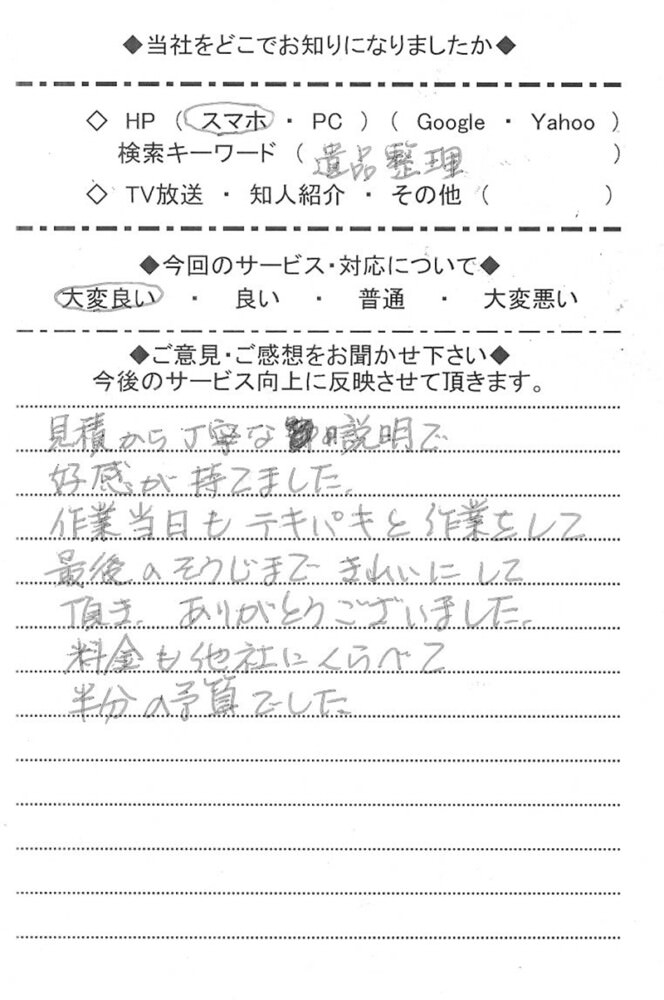 ◆当社をどこでお知りになりましたか◆
◇ HP （ スマホ ・ PC ）（ Google ・ Yahoo ）
検索キーワード （ 遺品整理 ）
◇ TV放送 ・ 知人紹介 ・ その他 （ ）
◆今回のサービス・対応について◆
大変良い ・ 良い ・ 普通 ・ 大変悪い
◆ご意見・ご感想をお聞かせ下さい◆
今後のサービス向上に反映させて頂きます。
見積から丁寧な説明で
好感が持てました。
作業当日もテキパキと作業をして
最後のそうじまできれいにして
頂き、ありがとうございました。
料金も他社にくらべて
半分の予算でした。